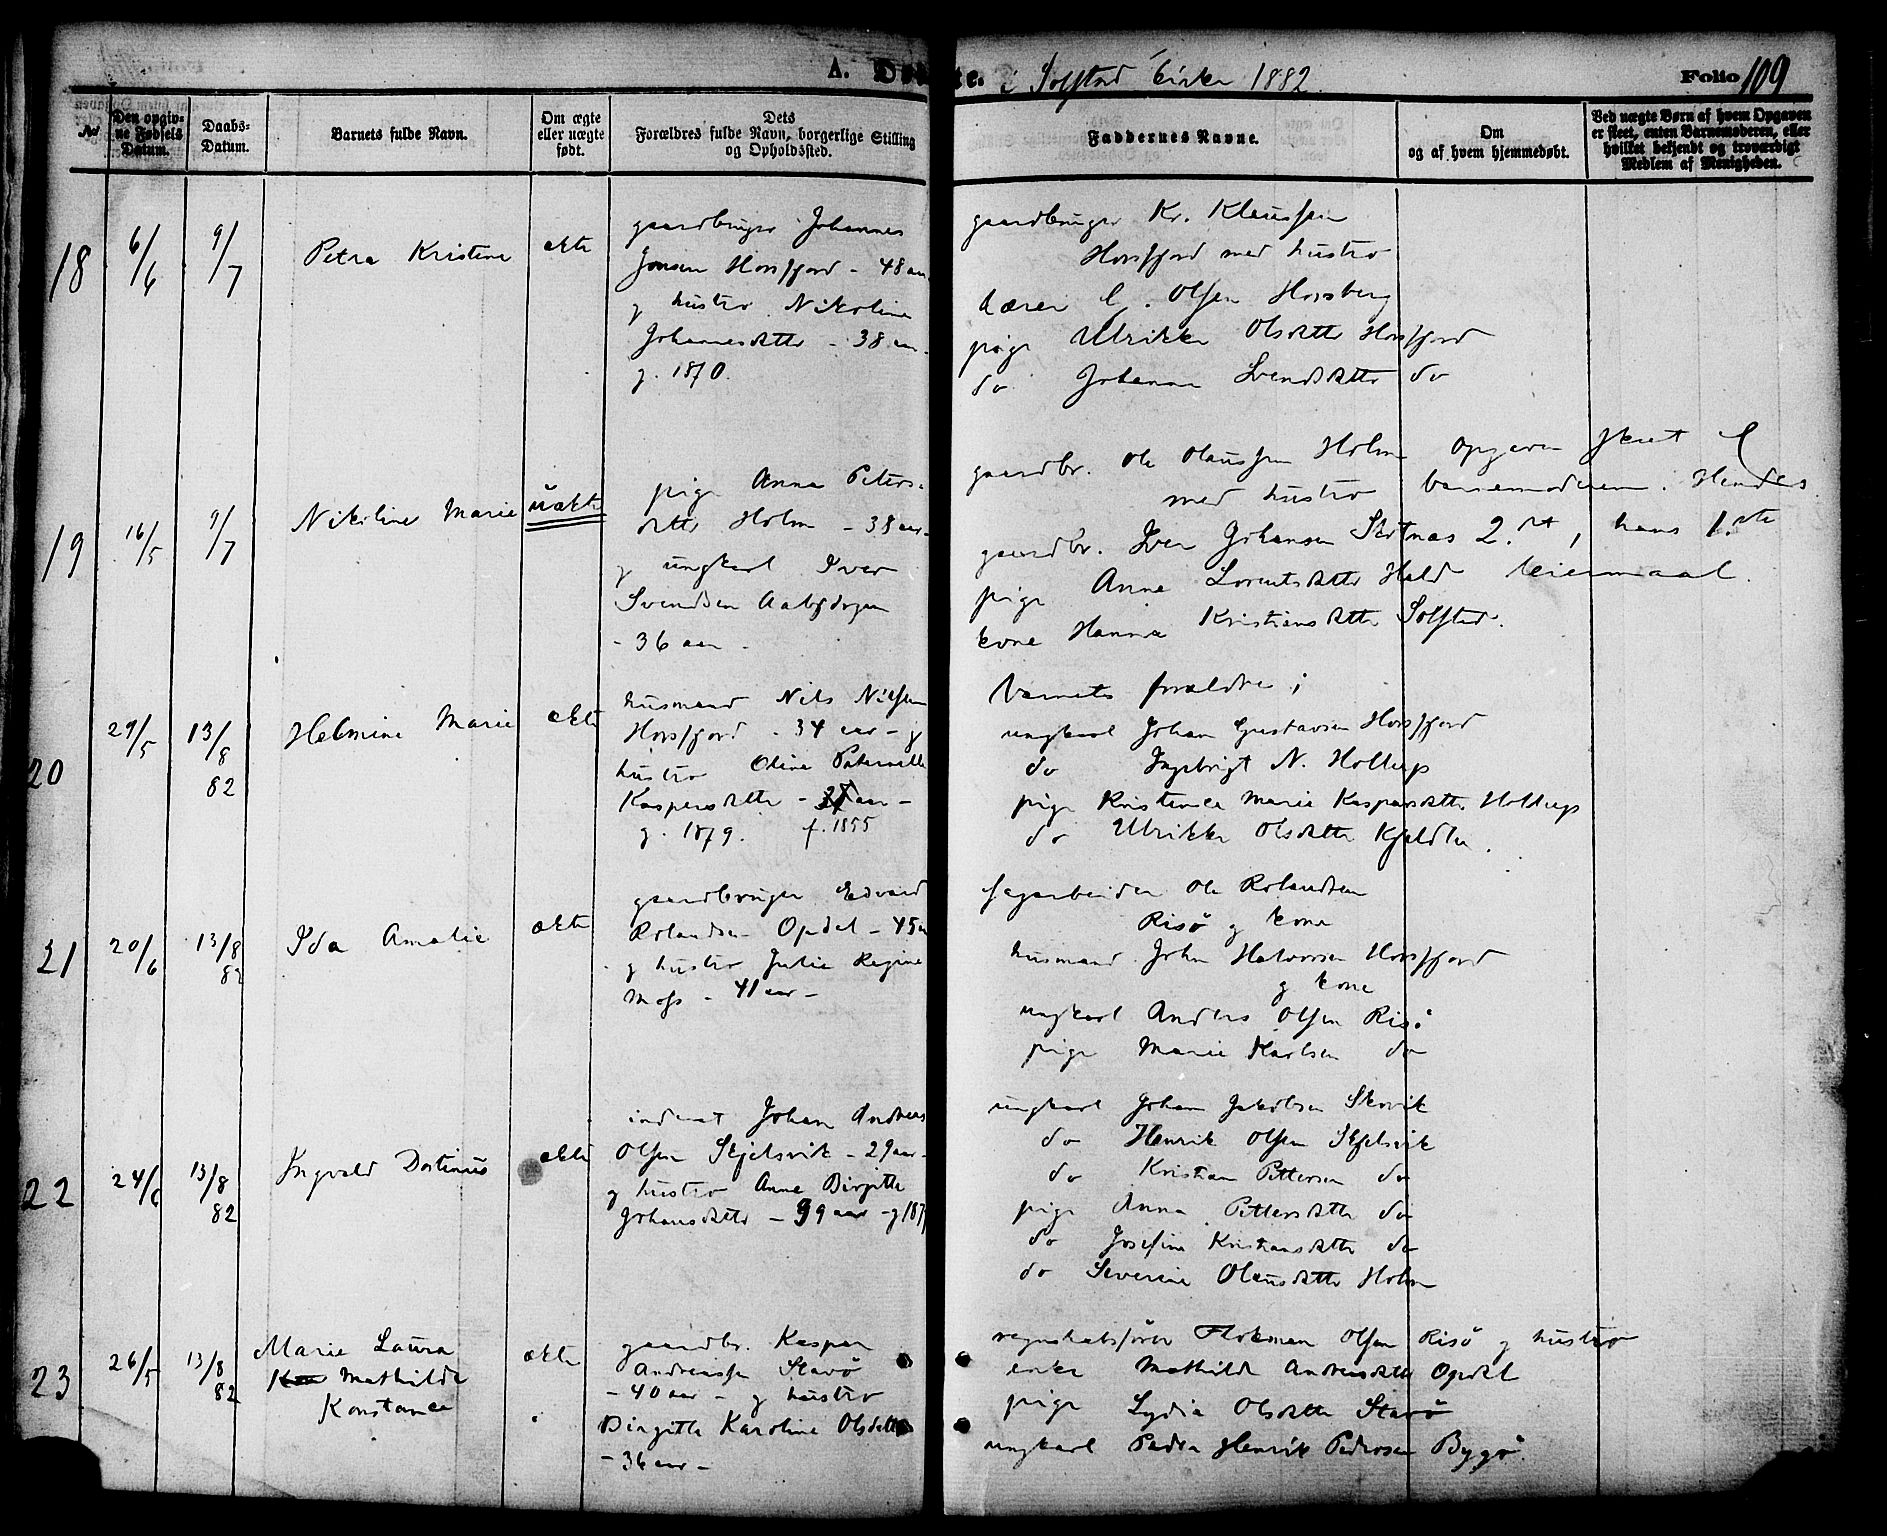 A. Døbte. i Solstad kirke 1882. Folio 109
No
Den opgivne Fødsels Datum.
Daabs-Datum.
Barnets fulde Navn.
Om ægte eller uægte født.
Dets Forældres fulde Navn, borgerlige Stilling og Opholdssted.
Faddernes Navne.
Om og af hvem hjemmedøbt.
Ved uægte Børn af hvem Opgaven er skeet, enten Barnemoderen, eller hvilket bekjendt og troværdigt Medlem af Menigheden.
18
6/6
9/7
Petra Kristine
ekte
gaardbruger Johannes
Jonsen Horsfjord - 48 aar
og hustro Nikoline
Johannesdatter - 38 aar -
g. 1870.
gaardbruger Kr. Klaussen
Horsfjord med hustro
Lærer C. Olsen Horsberg
pige Ulrikke Olsdatter Horsfjord
do Johanna Svendsdatter do
19
16/5
9/7
Nikoline Marie
uekte
pige Anna Peters-
datter Holm - 38 aar -
og ungkarl Iver
Svendsen
- 36 aar -
gaardbr. Ole Olaussen Holm
med hustro
gaardbr. Iver Johansen Skotnæs
pige Anne Lorentsdatter Hald
kone Hanna Kristiansdatter Solstad.
Opgaven skeet af
barnemoderen. Hendes
2.det, hans 1.ste
leiermaal.
20
29/5
13/8
82
Helmine Marie
ekte
husmand Nils Nilssen
Horsfjord - 34 aar - og
hustro Oline Peternelle
Kaspersdatter - aar -
g. 1879. f. 1855
barnets forældre;
ungkarl Johan Gustavsen Horsfjord
do Ingebrigt N. Holterp
pige Kristense Marie Kaspersdatter
do Ulrikke Olsdatter Kjeldli.
21
20/6
13/8
82
Ida Amalie
ekte
gaardbruger Edvard
Rolandsen Opdal - 45 aar
og hustro Julie Regine
Moss - 41 aar -
sagarbeider Ole Rolandsen
Risö og kone
husmand John Halvorsen Horsfjord
og kone
ungkarl Anders Olsen Risö
pige Marie Karlsen do
22
24/6
13/8
82
Ingvald Dortinus
ekte
inderst Johan Andreas
Olsen Skjelsvik - 29 aar -
og hustro Anne Birgitte
Johansdatter - 39 aar - g 187
ungkarl Johan Jakobsen Skovik
do Henrik Olsen Skjelsvik
do Kristian Pettersen do
pige Anna Pettersdatter do
do Josefine Kristiansdatter do
do Severine Olausdatter Holm
23
26/5
13/8
82
Marie Laura
Mathilde
Konstance
ekte
gaardbr. Kasper
Andreassen Stavö
- 40 aar - og hustro
Birgitte Karoline Olsdatter
- 36 aar -
regnskabsfører Olsen Risö og hustro
enke Mathilde Andreasdatter Opdal
pige Lydia Olsdatter Stavö
ungkarl Peder Henrik Pedersen Bygö.